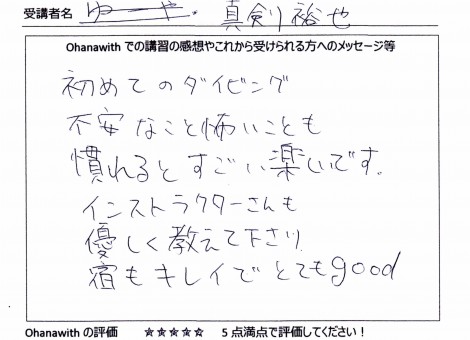 受講者名 真剣 裕也
Ohanawith での講習の感想やこれから受けられる方へのメッセージ等
初めてのダイビング
不安なこと怖いことも
慣れるとすごい楽いです。
インストラクターさんも
優しく教えて下さり
宿もキレイでとてもgood
Ohanawith の評価 ☆☆☆☆☆ 5点満点で評価してください！